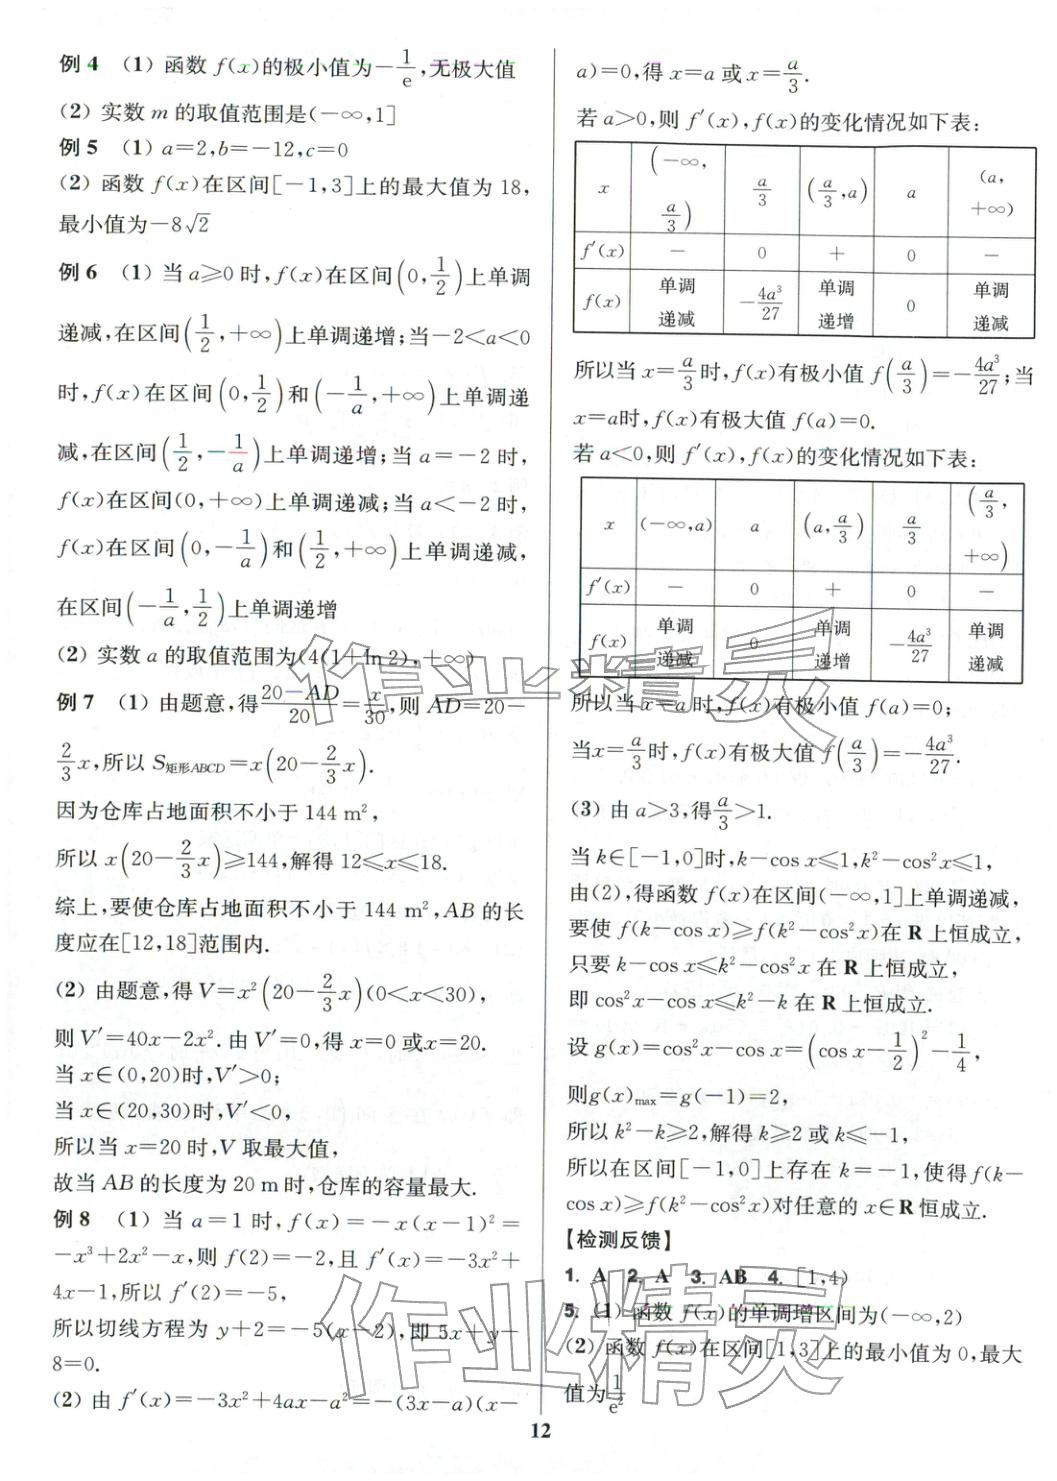 例4 (1) 函数 f(x)的极小值为−1/e,无极大值
(2) 实数 m 的取值范围是(−∞,1]
例5 (1) a=2,b=−12,c=0
(2) 函数 f(x)在区间[−1,3]上的最大值为 18,
最小值为−8√2
例6 (1) 当 a⩾0 时,f(x)在区间(0,1/2)上单调
递减,在区间(1/2,+∞)上单调递增;当−2<a<0
时,f(x)在区间(0,1/2)和(−1/a,+∞)上单调递
减,在区间(1/2,−1/a)上单调递增;当 a=−2 时,
f(x)在区间(0,+∞)上单调递减;当 a<−2 时,
f(x)在区间(0,−1/a)和(1/2,+∞)上单调递减,
在区间(−1/a,1/2)上单调递增
(2) 实数 a 的取值范围为(4(1+ln 2),+∞)
例7 (1) 由题意,得(20−AD)/20=x/30,则 AD=20−
2/3x,所以 S矩形ABCD=x(20−2/3x).
因为仓库占地面积不小于 144 m²,
所以 x(20−2/3x)⩾144,解得 12⩽x⩽18.
综上,要使仓库占地面积不小于 144 m²,AB 的长
度应在[12,18]范围内.
(2) 由题意,得 V=x²(20−2/3x)(0<x<30),
则 V′=40x−2x². 由 V′=0,得 x=0 或x=20.
当 x∈(0,20)时,V′>0;
当 x∈(20,30)时,V′<0,
所以当 x=20 时,V 取最大值,
故当 AB 的长度为 20 m 时,仓库的容量最大.
例8 (1) 当 a=1 时,f(x)=−x(x−1)²=
−x³+2x²−x,则 f(2)=−2,且 f′(x)=−3x²+
4x−1,所以 f′(2)=−5,
所以切线方程为 y+2=−5(x−2),即 5x+y−
8=0.
(2) 由 f′(x)=−3x²+4ax−a²=−(3x−a)(x−
a)=0,得 x=a 或 x=a/3.
若 a>0,则 f′(x),f(x)的变化情况如下表:
x (−∞,a/3) a/3 (a/3,a) a (a,+∞)
f′(x) − 0 + 0 −
f(x) 单调递减 −4a³/27 单调递增 0 单调递减
所以当 x=a/3时,f(x)有极小值 f(a/3)=−4a³/27;当
x=a时,f(x)有极大值 f(a)=0.
若 a<0,则 f′(x),f(x)的变化情况如下表:
x (−∞,a) a (a,a/3) a/3 (a/3,+∞)
f′(x) − 0 + 0 −
f(x) 单调递减 0 单调递增 −4a³/27 单调递减
所以当 x=a 时,f(x)有极小值 f(a)=0;
当x=a/3时,f(x)有极大值 f(a/3)=−4a³/27.
(3) 由 a>3,得a/3>1.
当 k∈[−1,0]时,k−cos x⩽1,k²−cos²x⩽1,
由(2),得函数 f(x)在区间(−∞,1]上单调递减,
要使 f(k−cos x)⩾f(k²−cos²x)在 R 上恒成立,
只要 k−cos x⩽k²−cos²x 在 R 上恒成立,
即 cos²x−cos x⩽k²−k 在 R 上恒成立.
设 g(x)=cos²x−cos x=(cos x−1/2)²−1/4,
则g(x)max=g(−1)=2,
所以 k²−k⩾2,解得 k⩾2 或 k⩽−1,
所以在区间[−1,0]上存在 k=−1,使得 f(k−
cos x)⩾f(k²−cos²x)对任意的 x∈R 恒成立.
【检测反馈】
1. A 2. A 3. AB 4. [1,4)
5. (1) 函数 f(x)的单调增区间为(−∞,2)
(2) 函数 f(x)在区间[1,3]上的最小值为 0,最大
值为1/e²
12
作业精灵
作业精灵